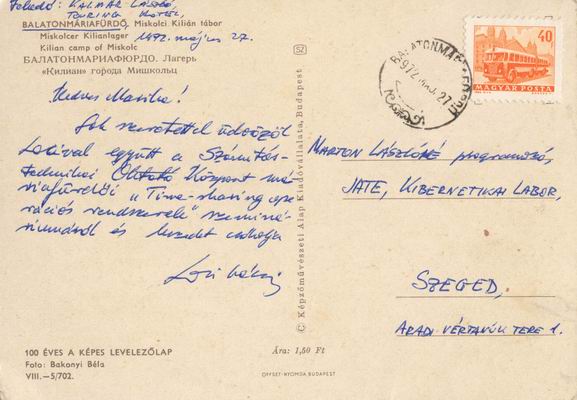 Feladó: KALMÁR LÁSZLÓ,
TOURING HOTEL,
BALATONMÁRIAFÜRDŐ, Miskolci Kilián tábor
Miskolcer Kilianlager 1972. május 27.
Kilian camp of Miskolc
БАЛАТОНМАРИАФЮРДО. Лагерь
«Килиан» города Мишкольц
Kedves Marika!
Sok szeretettel üdvözöl
Locival együtt a Számítás-
technikai Oktató Központ má-
riafürdői „Time-sharing ope-
rációs rendszerek" szeminá-
riumáról és kezedet csókolja
Laci bácsi
100 ÉVES A KÉPES LEVELEZŐLAP
Foto: Bakonyi Béla
VIII.—5/702.
Ára: 1,50 Ft
OFFSET-NYOMDA BUDAPEST
© Képzőművészeti Alap Kiadóvállalata, Budapest
SZ
40
MAGYAR POSTA
MARTON LÁSZLÓNÉ programozó,
JATE, KIBERNETIKAI LABOR,
SZEGED,
ARADI VÉRTANÚK TERE 1.